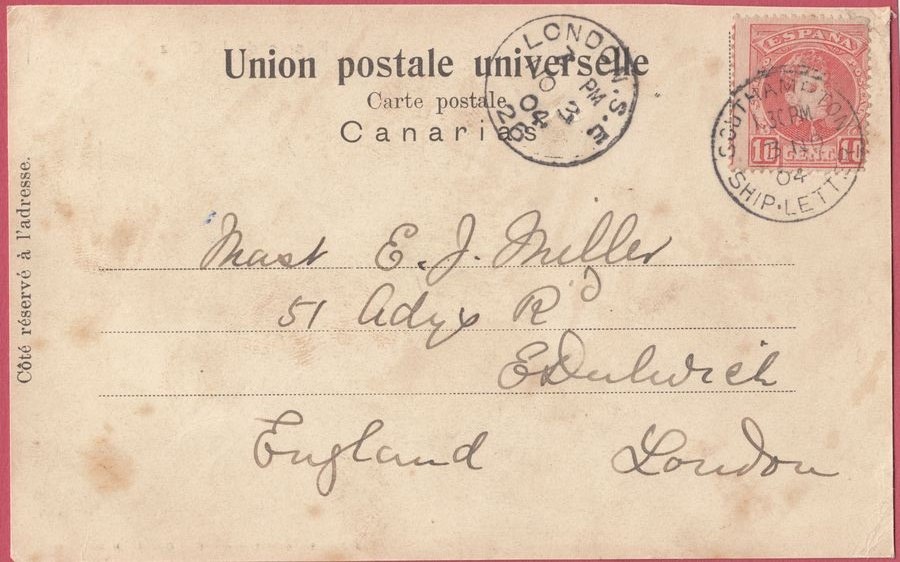 Union postale universelle
Carte postale
Canarias
Côté réservé à l'adresse.
LONDON. S.E
7 PM
3
04
26
ESPAÑA
10 CENT 10
SOUTHAMPTON
1.30 PM
04
SHIP·LETT
Mast E. J. Miller
51 Adys Rd
E Dulwich
England London